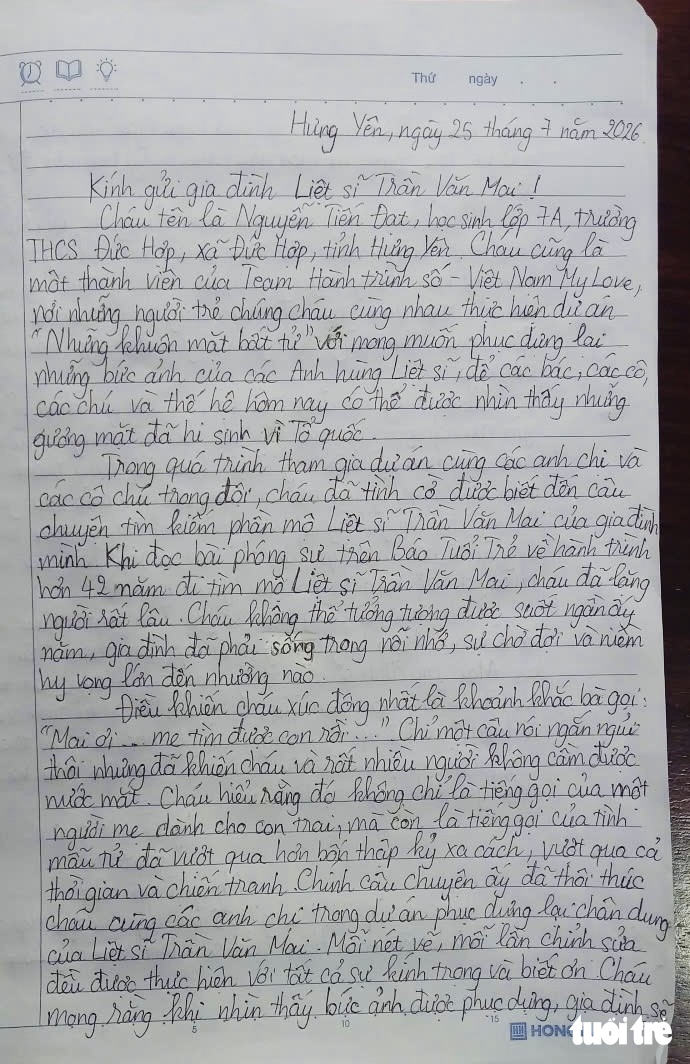 Thứ ngày . .
Hưng Yên, ngày 25 tháng 7 năm 2026.
Kính gửi gia đình Liệt sĩ Trần Văn Mai !
Cháu tên là Nguyễn Tiến Đạt, học sinh lớp 7A, trường
THCS Đức Hợp, xã Đức Hợp, tỉnh Hưng Yên. Cháu cũng là
một thành viên của Team Hành trình số - Việt Nam My Love,
nơi những người trẻ chúng cháu cùng nhau thực hiện dự án
"Những khuôn mặt bất tử" với mong muốn phục dựng lại
những bức ảnh của các Anh hùng Liệt sĩ, để các bác, các cô,
các chú và thế hệ hôm nay có thể được nhìn thấy những
gương mặt đã hi sinh vì Tổ quốc.
Trong quá trình tham gia dự án cùng các anh chị và
các cô chú trong đội, cháu đã tình cờ được biết đến câu
chuyện tìm kiếm phần mộ Liệt sĩ Trần Văn Mai của gia đình
mình. Khi đọc bài phóng sự trên Báo Tuổi Trẻ về hành trình
hơn 42 năm đi tìm mộ Liệt sĩ Trần Văn Mai, cháu đã lặng
người rất lâu. Cháu không thể tưởng tượng được suốt ngần ấy
năm, gia đình đã phải sống trong nỗi nhớ, sự chờ đợi và niềm
hy vọng lớn đến nhường nào.
Điều khiến cháu xúc động nhất là khoảnh khắc bà gọi:
"Mai ơi ... mẹ tìm được con rồi ..." Chỉ một câu nói ngắn ngủi
thôi nhưng đã khiến cháu và rất nhiều người không cầm được
nước mắt. Cháu hiểu rằng đó không chỉ là tiếng gọi của một
người mẹ dành cho con trai, mà còn là tiếng gọi của tình
mẫu tử đã vượt qua hơn bốn thập kỷ xa cách, vượt qua cả
thời gian và chiến tranh. Chính câu chuyện ấy đã thôi thúc
cháu cùng các anh chị trong dự án phục dựng lại chân dung
của Liệt sĩ Trần Văn Mai. Mỗi nét vẽ, mỗi lần chỉnh sửa
đều được thực hiện với tất cả sự kính trọng và biết ơn. Cháu
mong rằng khi nhìn thấy bức ảnh được phục dựng, gia đình sẽ
5 10 15 HONG
tuổi trẻ